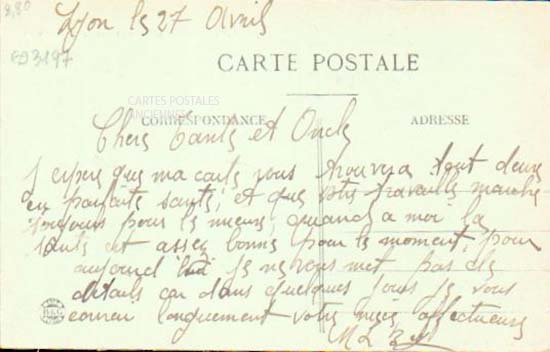 Lyon le 27 Avril
8,80
693197
CARTE POSTALE
CARTES POSTALES
ANCIENNES
CORRESPONDANCE
ADRESSE
Chers Tante et Oncle
J espere que ma carte vous trouvera tout deux
en parfaite santé, et que votre travaille marche
toujours pour le mieux, quand a moi la
sante est assez bonne pour le moment, pour
aujourd hui je ne vous met pas de
details car dans quelques jours je vous
longuement votre niece affectueuse
B&G